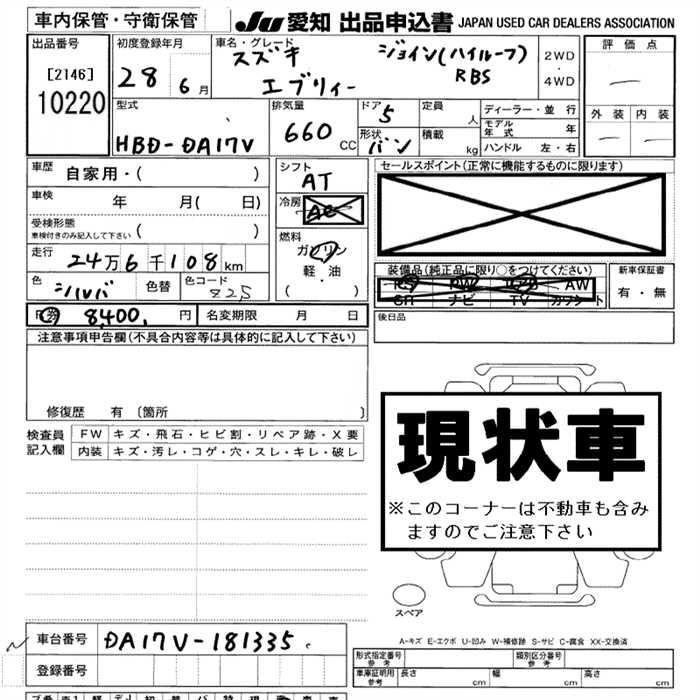 車内保管・守衛保管
JU 愛知 出品申込書 JAPAN USED CAR DEALERS ASSOCIATION
出品番号
[2146]
10220
初度登録年月
28 6月
車名・グレード
スズキ
エブリィー
ジョイン(ハイルーフ)
RBS
2WD
・
4WD
評価点
—
外装 内装
— —
型式
HBD-DA17V
排気量
660 CC
ドア 5
形状 バン
定員 人
積載 kg
ディーラー・並行
モデル年式 年
ハンドル 左・右
車歴 自家用・( )
車検 年 月( 日)
受検形態
車検付きのみ記入して下さい ( )
走行 24万6千108km
色 シルバ 色替 色コード Z25
シフト
AT
冷房 AC
燃料
ガソリン
軽・油
( ・ )
セールスポイント(正常に機能するものに限ります)
装備品(純正品に限り○をつけてください)
AW
ナビ TV
新車保証書
有・無
後日品
R券 8,400, 円 名変期限 月 日
注意事項申告欄(不具合内容等は具体的に記入して下さい)
修復歴 有 〔箇所 〕
検査員記入欄
FW キズ・飛石・ヒビ割・リペア跡・X要
内装 キズ・汚レ・コゲ・穴・スレ・キレ・破レ
現状車
※このコーナーは不動車も含み
ますのでご注意下さい
スペア
A-キズ E-エクボ U-凹み W-補修跡 S-サビ C-腐食 XX-交換済
車台番号 DA17V-181335
登録番号
形式指定番号 参考
類別区分番号 参考
車庫証明用 参考 長さ cm 幅 cm 高さ cm